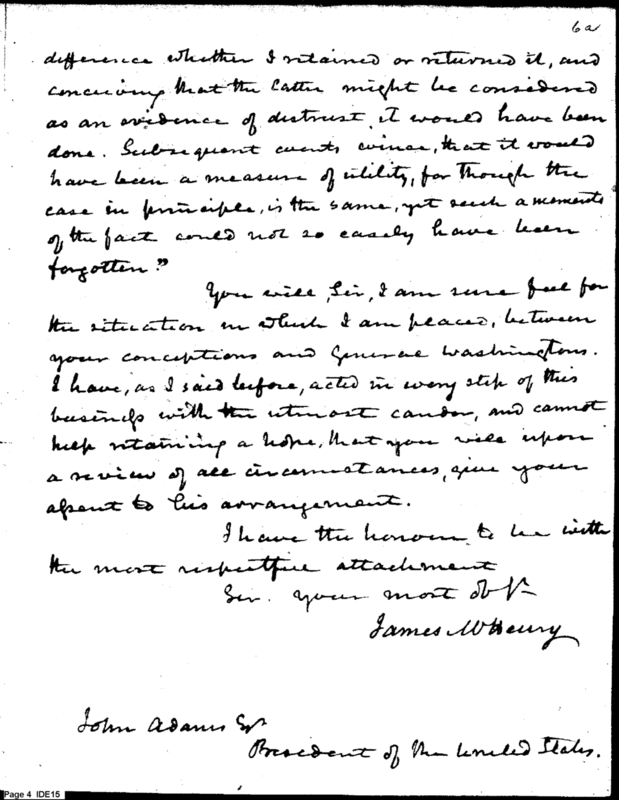 6a
difference whether I retained or returned it, and
conceiving that the latter might be considered
as an evidence of distrust, it would have been
done. Subsequent events evince, that it would
have been a measure of utility, for though the
case in principle, is the same, yet such a memento
of the fact could not so easely have been
forgotten."
You will, Sir, I am sure feel for
the situation in which I am placed, between
your conceptions and General Washingtons.
I have, as I said before, acted in every step of this
business with the utmost candor, and cannot
help retaining a hope, that you will upon
a review of all circumstances, give your
assent to his arrangement.
I have the honour to be with
the most respectful attachment
Sir. your most obt
James McHenry
John Adams Esqr
President of the United States.
Page 4 IDE15